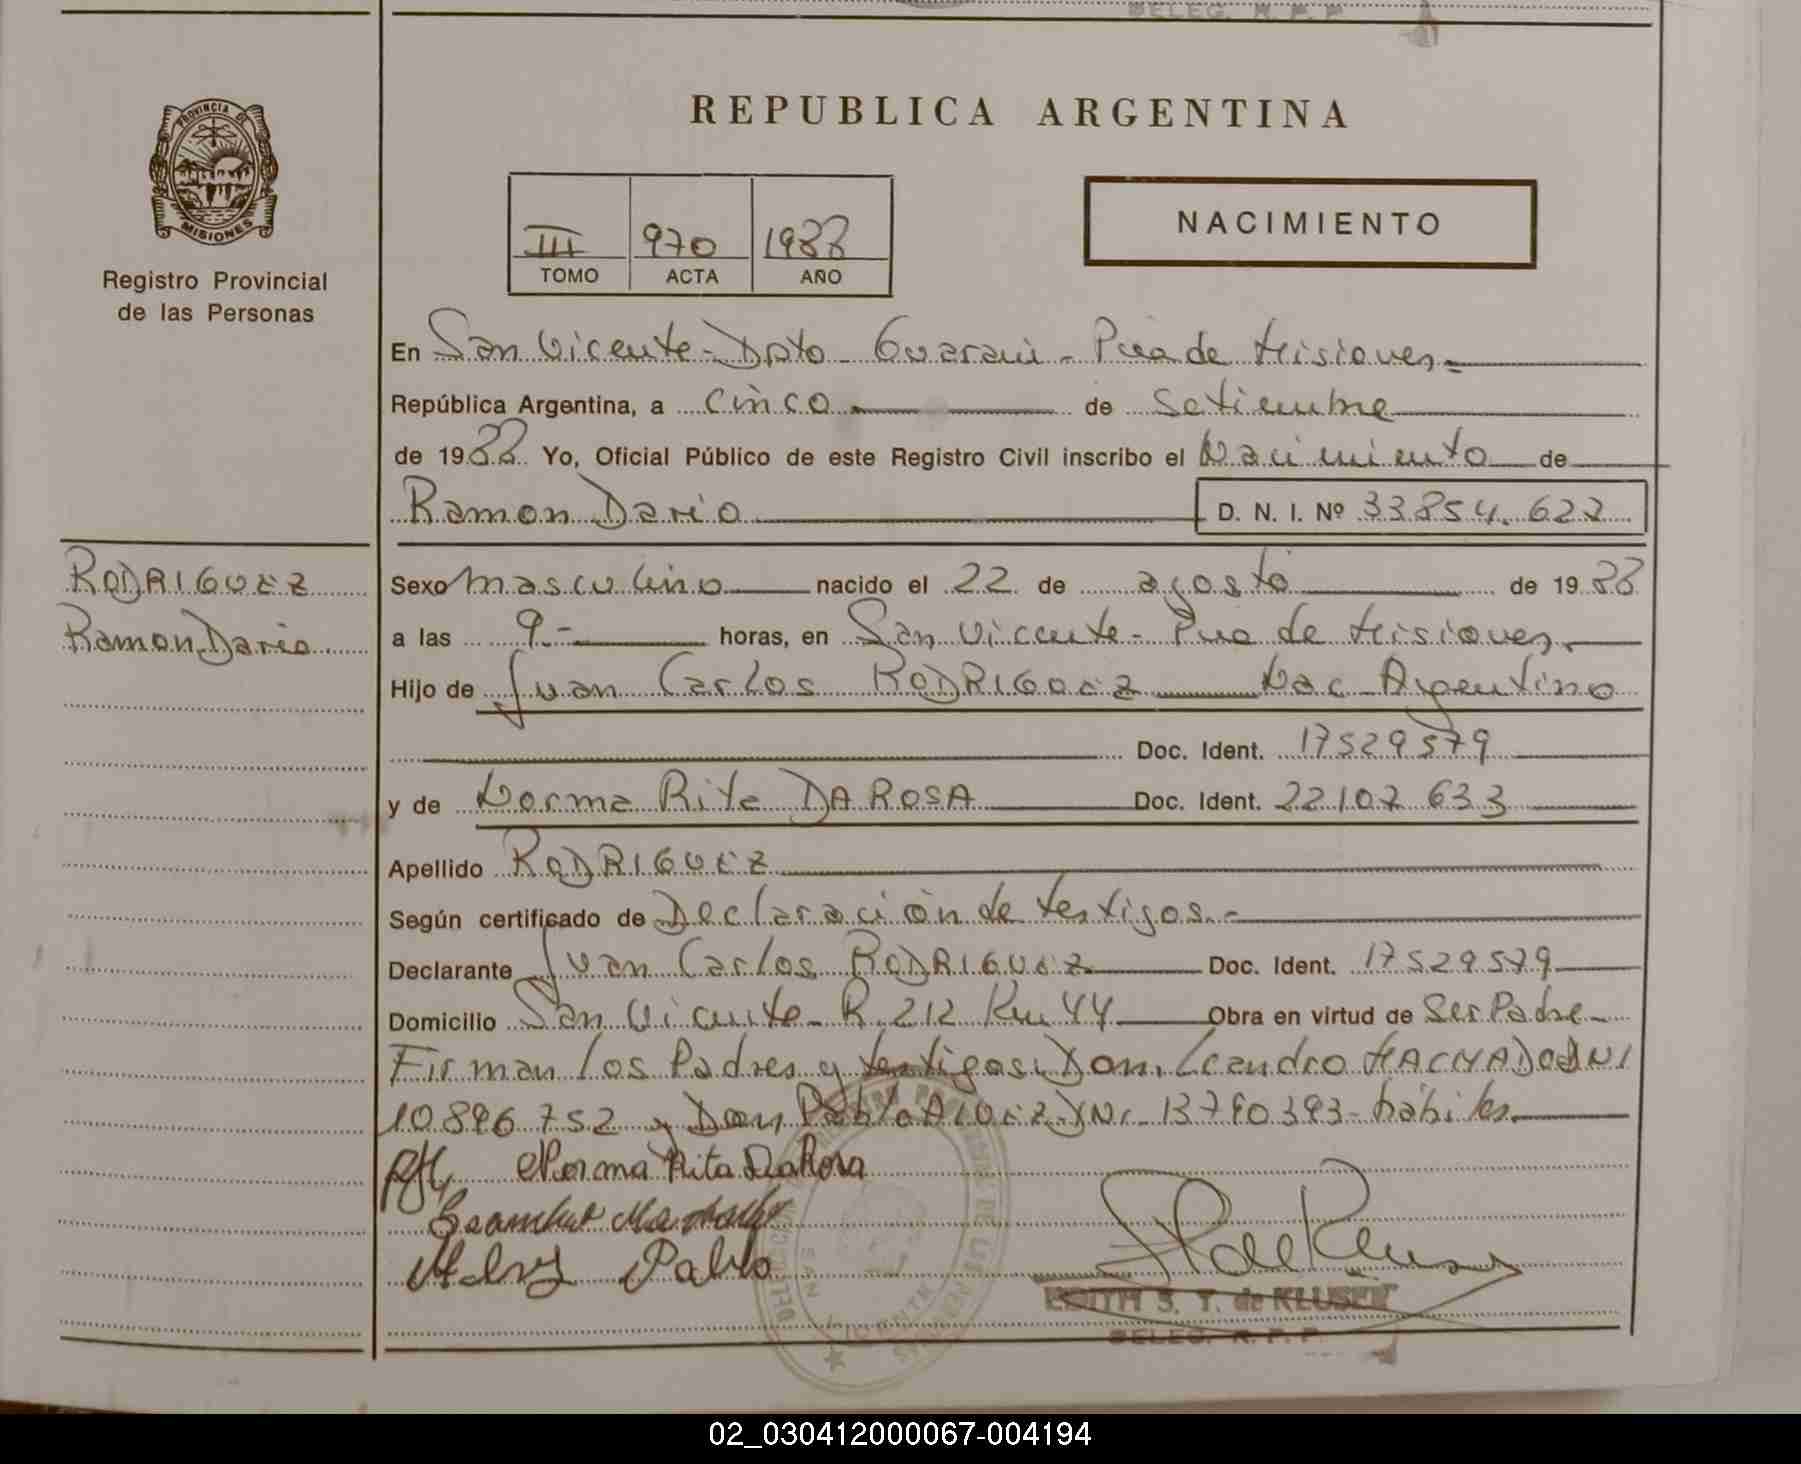 DELEG. R. P. P.
REPUBLICA ARGENTINA
PROVINCIA DE
MISIONES
Registro Provincial
de las Personas
III 970 1988
TOMO ACTA AÑO
NACIMIENTO
En San Vicente - Dpto - Guarani - Pcia de Misiones,=
República Argentina, a cinco de Setiembre
de 1988. Yo, Oficial Público de este Registro Civil inscribo el Nacimiento de
Ramon Dario D. N. I. Nº 33.854.627
RODRIGUEZ
Ramon Dario
Sexo masculino nacido el 22 de agosto de 1988
a las 9.- horas, en San Vicente - Pcia de Misiones,
Hijo de Juan Carlos RODRIGUEZ Nac Argentino
Doc. Ident. 17529579
y de Norma Rita DA ROSA Doc. Ident. 22107 633
Apellido RODRIGUEZ
Según certificado de Declaración de testigos.-
Declarante Juan Carlos RODRIGUEZ Doc. Ident. 17529579
Domicilio San Vicente - R. 212 Km 44 Obra en virtud de Ser Padre -
Firman los Padres y testigos: Don. Leandro MACHADO DNI
10896752 y Don Pablo ALVEZ DNI. 13790393 - hábiles.
Norma Rita DaRosa
Pablo
EDITH S. T. de KLUSEN
DELEG. R. P. P.
SAN VICENTE
02_030412000067-004194